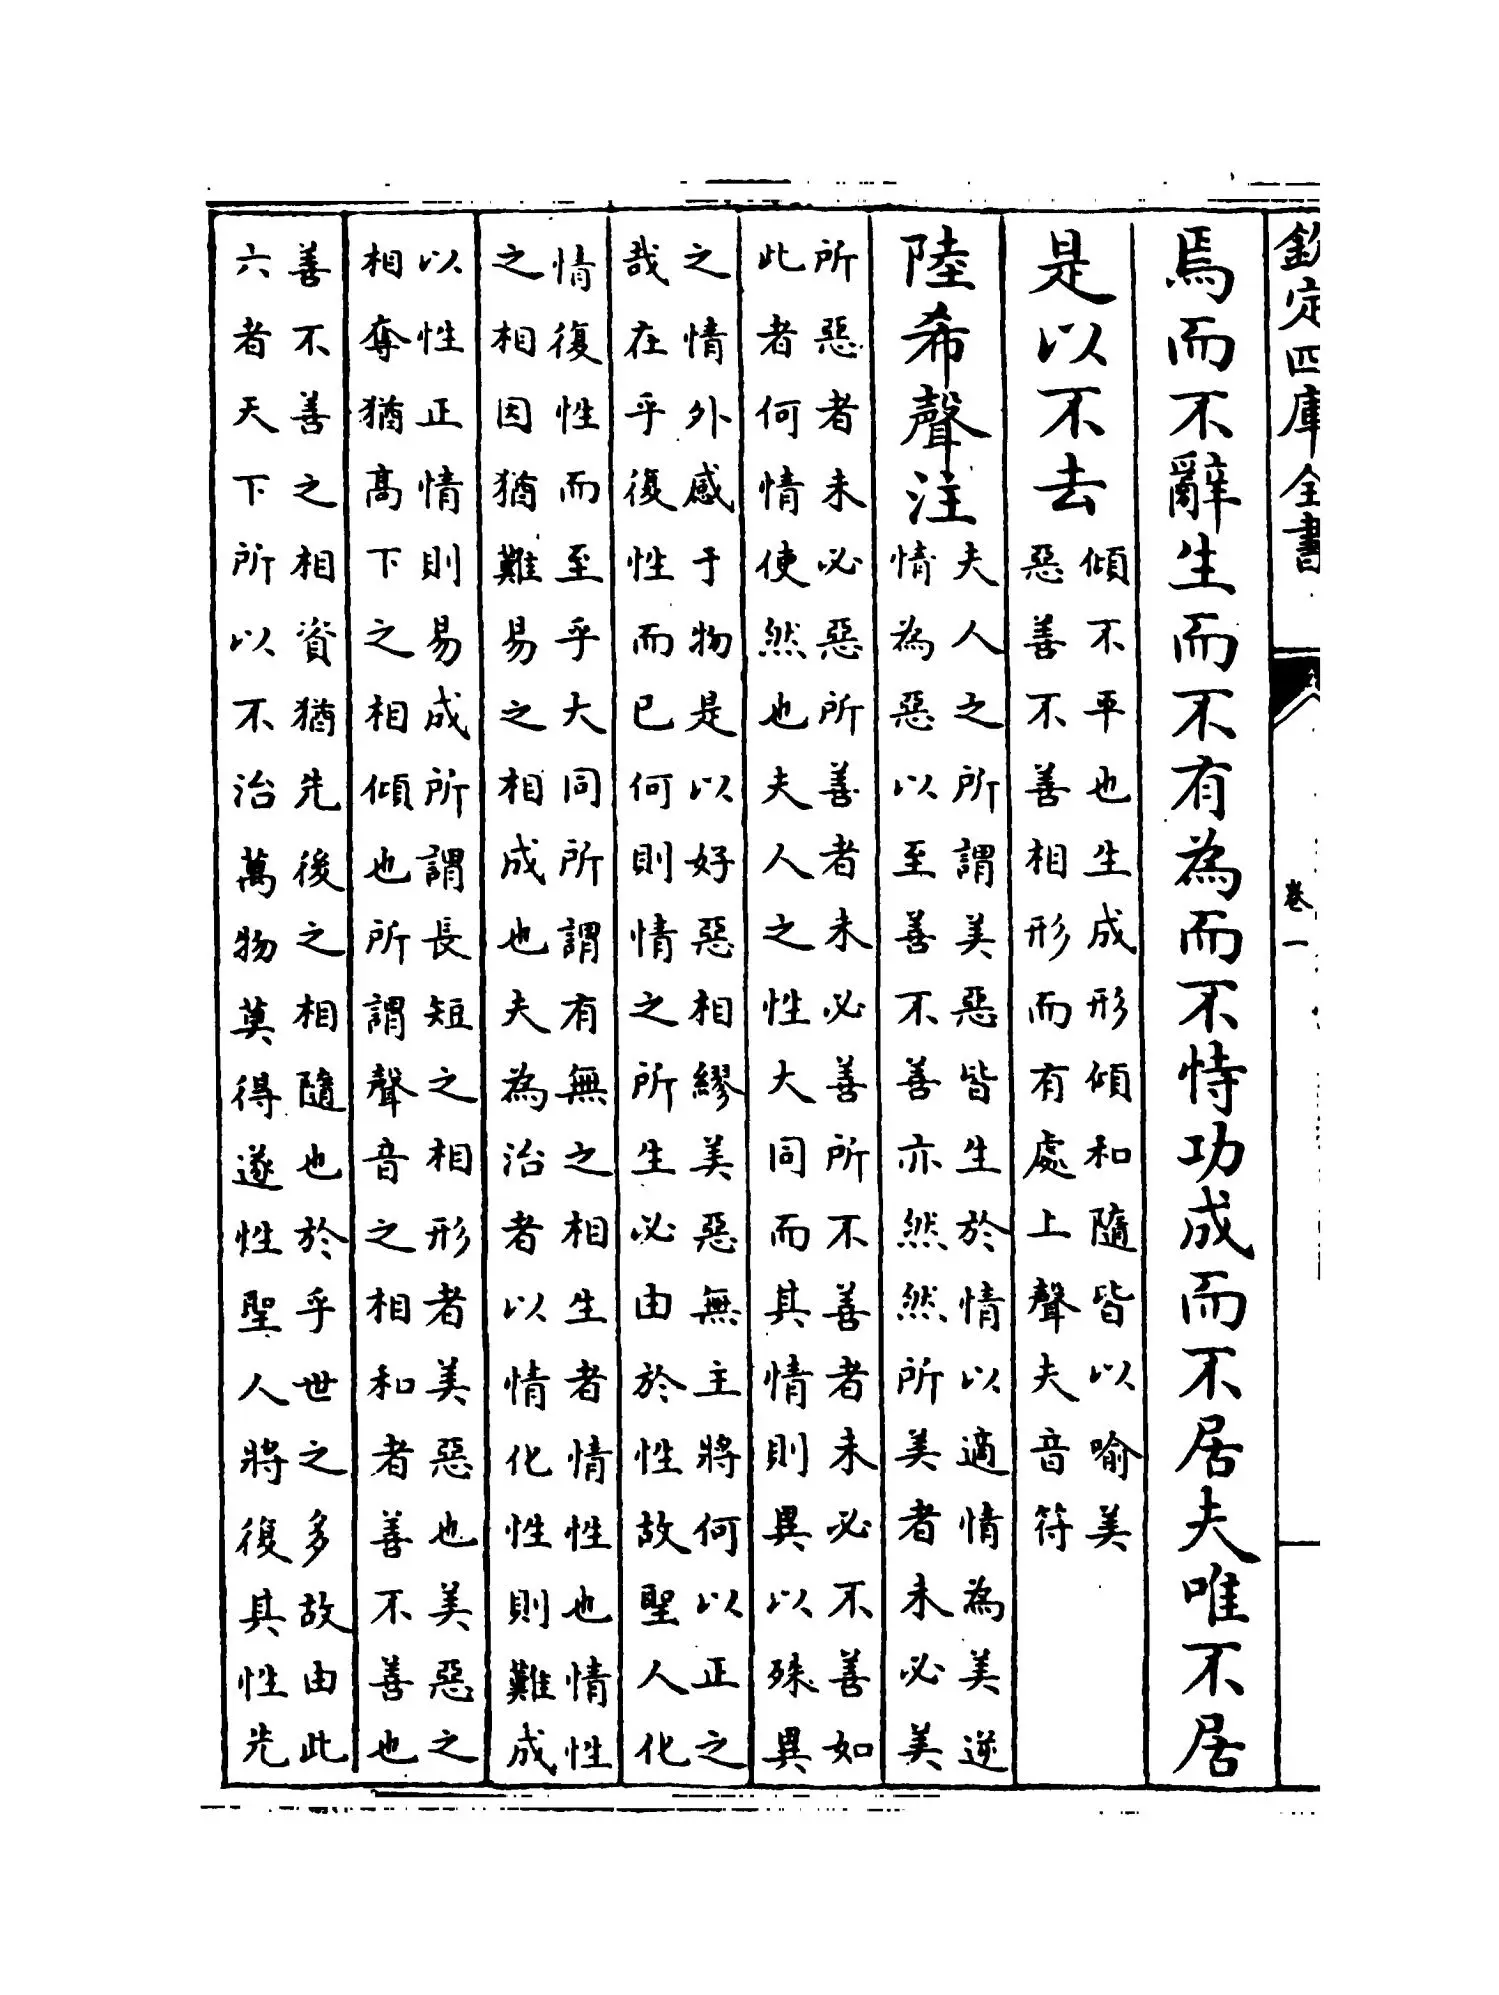 欽定四庫全書
卷一
焉而不辭生而不有為而不恃功成而不居夫唯不居
是以不去
傾不平也生成形傾和隨皆以喻美
惡善不善相形而有處上聲夫音符
陸希聲注
夫人之所謂美惡皆生於情以適情為美逆
情為惡以至善不善亦然然所美者未必美
所惡者未必惡所善者未必善所不善者未必不善如
此者何情使然也夫人之性大同而其情則異以殊異
之情外感于物是以好惡相繆美惡無主將何以正之
哉在乎復性而已何則情之所生必由於性故聖人化
情復性而至乎大同所謂有無之相生者情性也情性
之相因猶難易之相成也夫為治者以情化性則難成
以性正情則易成所謂長短之相形者美惡也美惡之
相奪猶高下之相傾也所謂聲音之相和者善不善也
善不善之相資猶先後之相隨也於乎世之多故由此
六者天下所以不治萬物莫得遂性聖人將復其性先